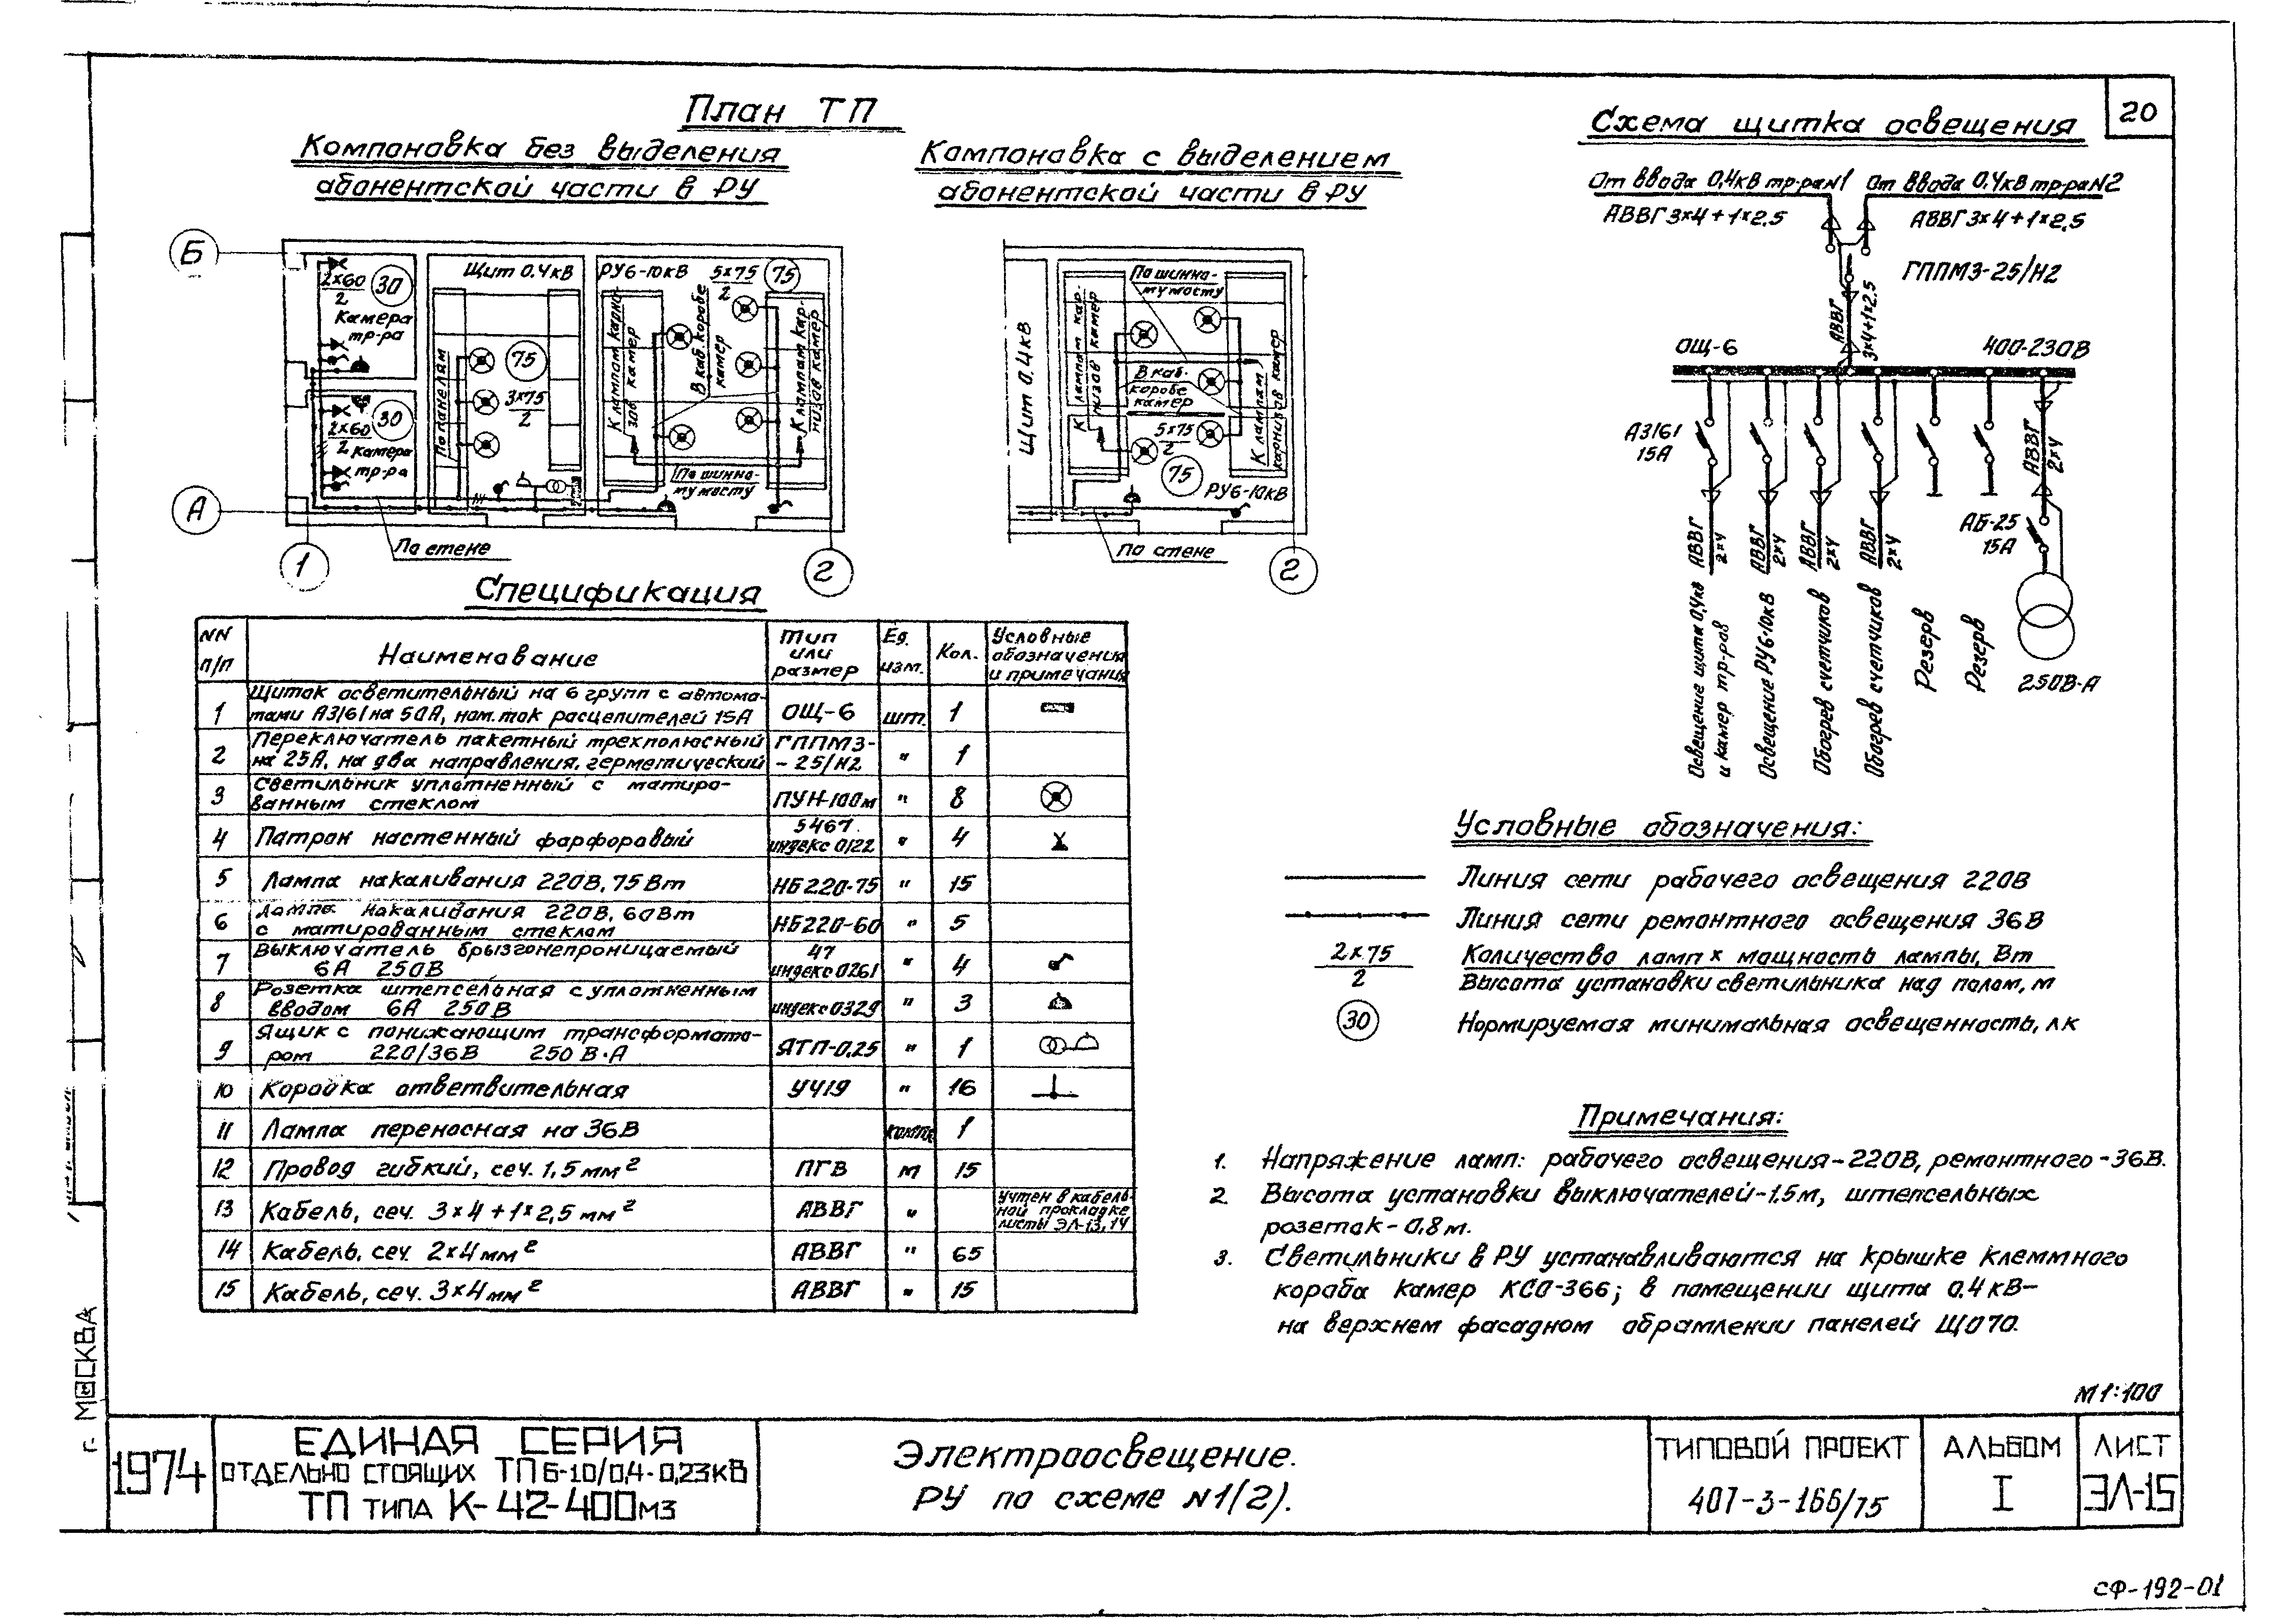 20
План ТП
Компоновка без выделения
абонентской части в РУ
Компоновка с выделением
абонентской части в РУ
Схема щитка освещения
От ввода 0,4кВ тр-ра№1
От ввода 0,4кВ тр-ра№2
АВВГ 3×4+1×2,5
АВВГ 3×4+1×2,5
ГППМ3-25/Н2
АВВГ
3×4+1×2,5
ОЩ-6
400-230В
А3161
15А
АВВГ
2×4
АВВГ
2×4
АВВГ
2×4
АВВГ
2×4
АВВГ
2×4
АБ-25
15А
250В·А
Освещение щита 0,4кВ
и камер тр-рав
Освещение РУ6-10кВ
Обогрев счетчиков
Обогрев счетчиков
Резерв
Резерв
Б
А
1
2
2×60
2
30
Камера
тр-ра
2×60
2
30
Камера
тр-ра
Щит 0.4кВ
По панелям
75
3×75
2
РУ6-10кВ
5×75
2
75
К лампам карни-
зов камер
В каб. коробе
камер
К лампам кар-
низов камер
По шинно-
му мосту
По стене
Щит 0,4кВ
По шинно-
му мосту
К лампам кар-
низов камер
В каб.
коробе
камер
К лампам
карнизов камер
5×75
2
75
РУ6-10кВ
По стене
2
Спецификация
NN п/п
Наименование
Тип или размер
Ед. изм.
Кол.
Условные обозначения и примечания
1 Щиток осветительный на 6 групп с автома-
тами А3161 на 50А, ном. ток расцепителей 15А ОЩ-6 шт. 1
2 Переключатель пакетный трехполюсный ГППМ3-
на 25А, на два направления, герметический -25/Н2 " 1
3 Светильник уплотненный с матиро-
ванным стеклом ПУН-100м " 8
4 Патрон настенный фарфоровый 5467 индекс 0122 " 4
5 Лампа накаливания 220В, 75Вт НБ220-75 " 15
6 Лампа накаливания 220В, 60Вт
с матированным стеклом НБ220-60 " 5
7 Выключатель брызгонепроницаемый
6А 250В 47 индекс 0261 " 4
8 Розетка штепсельная с уплотненным
вводом 6А 250В индекс 0329 " 3
9 Ящик с понижающим трансформато-
ром 220/36В 250В·А ЯТП-0,25 " 1
10 Коробка ответвительная У419 " 16
11 Лампа переносная на 36В компл. 1
12 Провод гибкий, сеч. 1,5мм² ПГВ м 15
13 Кабель, сеч. 3×4+1×2,5мм² АВВГ " Учтен в кабель-
ной прокладке
листы ЭЛ-13, 14
14 Кабель, сеч. 2×4мм² АВВГ " 65
15 Кабель, сеч. 3×4мм² АВВГ " 15
Условные обозначения:
Линия сети рабочего освещения 220В
Линия сети ремонтного освещения 36В
2×75
2
Количество ламп × мощность лампы, Вт
Высота установки светильника над полом, м
30
Нормируемая минимальная освещенность, лк
Примечания:
1. Напряжение ламп: рабочего освещения-220В, ремонтного-36В.
2. Высота установки выключателей-1.5м, штепсельных
розеток-0,8м.
3. Светильники в РУ устанавливаются на крышке клеммного
короба камер КСО-366; в помещении щита 0.4кВ-
на верхнем фасадном обрамлении панелей ЩО70.
М 1:100
г. МОСКВА
1974
ЕДИНАЯ СЕРИЯ
ОТДЕЛЬНО СТОЯЩИХ ТП 6-10/0,4-0,23КВ
ТП ТИПА К-42-400М3
Электроосвещение.
РУ по схеме №1(2).
ТИПОВОЙ ПРОЕКТ
407-3-166/75
АЛЬБОМ
I
ЛИСТ
ЭЛ-15
СФ-192-01